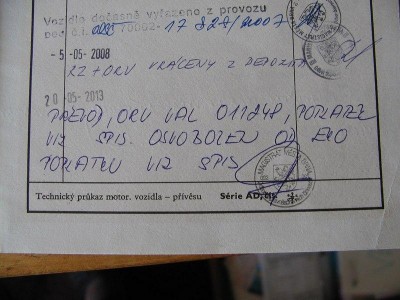 Vozidlo dočasně vyřazeno z provozu
pod č.j. ORV 70002-17 828/2007
-5 -05- 2008
RZ + ORV VRÁCENY Z DEPOZITA
20 -05- 2013
PŘEVOD, ORV UAL 011248, POPLATEK
VIZ SPIS. OSVOBOZEN OD EKO
POPLATKU VIZ SPIS
Technický průkaz motor. vozidla – přívěsu Série AD, čís.